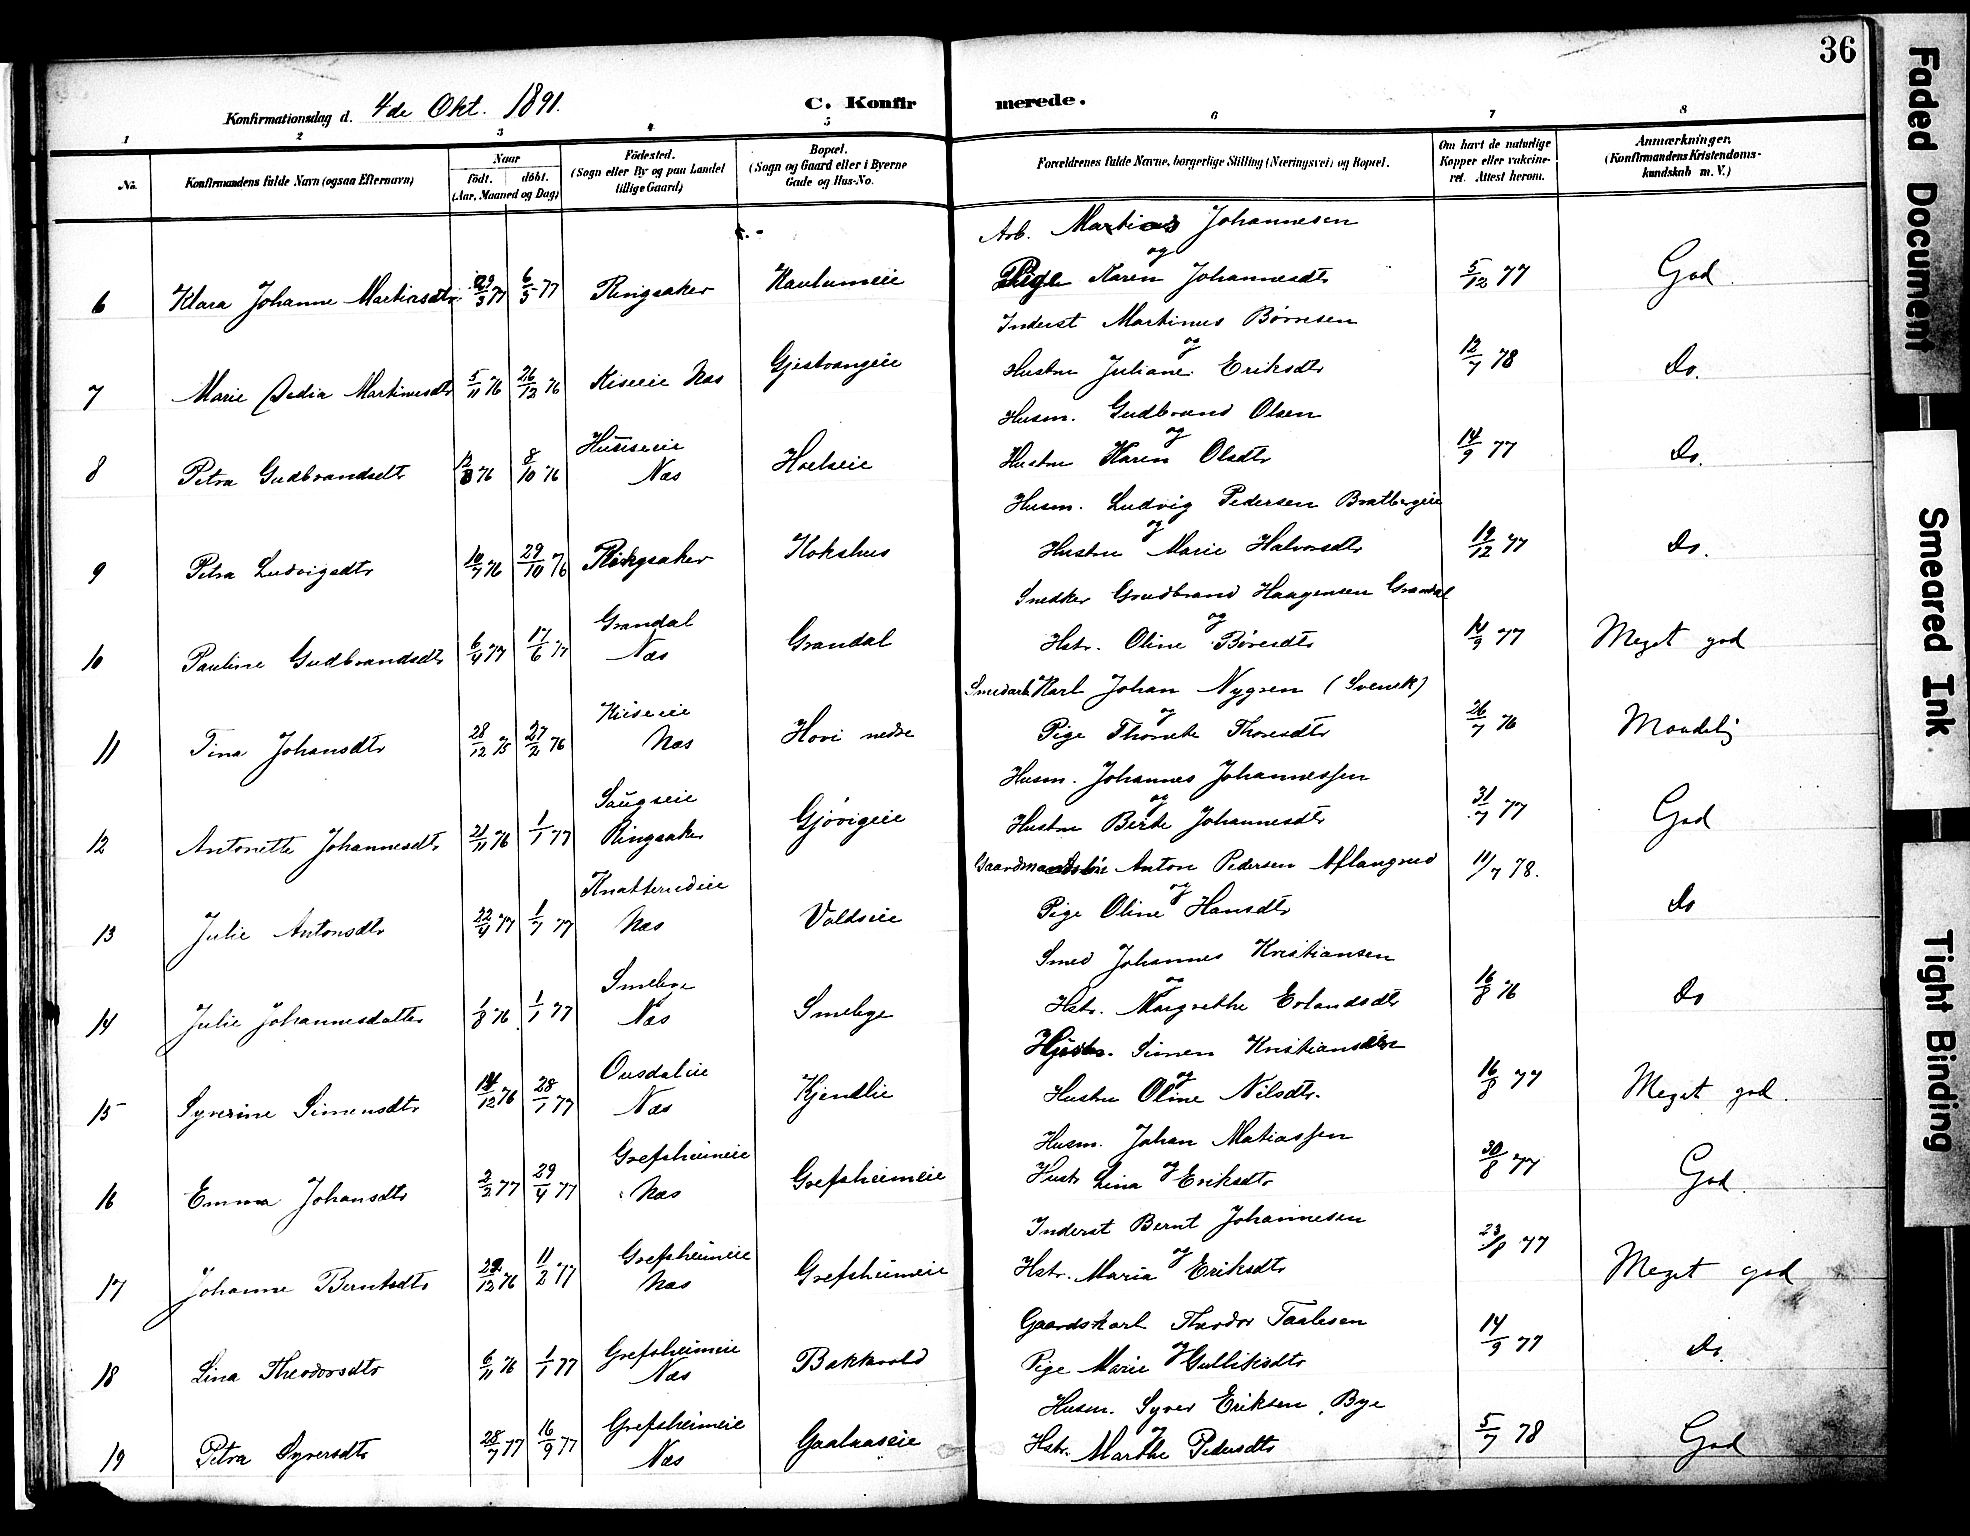 36
Konfirmationsdag d. 4de Okt. 1891.
C. Konfirmerede.
1 2 3 4 5 6 7 8
No. Konfirmandens fulde Navn (ogsaa Efternavn)
Naar født. døbt. (Aar, Maaned og Dag)
Fødested. (Sogn eller By og paa Landet tillige Gaard)
Bopæl. (Sogn og Gaard eller i Byerne Gade og Hus-No.
Forældrenes fulde Navne, borgerlige Stilling (Næringsvei) og Bopæl.
Om havt de naturlige Kopper eller vakcineret. Attest herom.
Anmærkninger, (Konfirmandens Kristendomskundskab m. V.)
Arb. Johannesen
og
6 Klara Johanne 6/5 77 Ringsaker Pige Karen Johannesdtr 5/12 77 God.
Inderst Martinus Børresen
og
7 Marie Martinusdtr 5/11 76 26/12 76 Kiseie Næs Gjestvangeie Hustru Juliane Eriksdtr 12/7 78 Do.
Husm. Gudbrand Olsen
og
8 Petra Gudbrandsdtr 76 8/10 76 Næs Hoelseie Hustru Karen Olsdtr 14/9 77 Do.
Husm. Ludvig Pedersen Bratbergeie
og
9 Petra Ludvigsdtr 10/7 76 29/10 76 Ringsaker Kokshus Hustru Marie Halvorsdtr 19/12 77 Do.
Snedker Gudbrand Haagensen Grandal
og
10 Pauline Gudbrandsdtr 6/4 77 17/6 77 Grandal Næs Grandal Hstr. Oline Børesdtr 14/9 77 Meget god
Smedarb. Karl Johan Nygren (Svensk)
og
11 Tina Johansdtr 28/12 75 27/2 76 Kiseeie Næs Hovi nedre Pige Thoresdtr 26/7 76 Maadelig
Husm. Johannes Johannessen
og
12 Antonette Johannesdtr 21/11 76 1/1 77 Saugseie Ringsaker Gjøvigeie Hustru Berte Johannesdtr 31/7 77 God
Anton Pedersen Aflangrud 11/7 78.
og
13 Julie Antonsdtr 22/4 77 1/7 77 Knatterudeie Næs Voldseie Pige Oline Hansdtr Do
Smed Johannes Kristiansen
og
14 Julie Johannesdatter 1/8 76 1/1 77 Smeby Næs Smeby Hstr. Margrethe Erlandsdtr 16/8 76 Do
Simen Kristiansen
og
15 Syverine Simensdtr 14/12 76 28/1 77 Næs Kjendlie Hustru Oline Nilsdtr. 16/8 77 Meget god.
Husm. Johan Matiassen
og
16 Emma Johansdtr 2/2 77 29/4 77 Grefsheimeie Næs Grefsheimeie Hustr Lina Eriksdtr 30/8 77 God.
Inderst Bernt Johannesen
og
17 Johanne Berntsdtr 29/12 76 11/2 77 Grefsheimeie Næs Grefsheimeie Hstr. Maria Eriksdtr 23/8 77 Meget god
Gaardskarl Theodor Taalesen
og
18 Lina Theodorsdtr 6/11 76 1/1 77 Grefsheimeie Næs Bakkvold Pige Marie Gulliksdtr 14/9 77 Do.
Husm. Syver Eriksen, Bye
og
19 Petra Syversdtr 28/7 77 16/9 77 Grefsheimeie Næs Gaalaaseie Hstr. Marthe Pedersdtr 5/7 78 God
Faded Document
Smeared Ink
Tight Binding